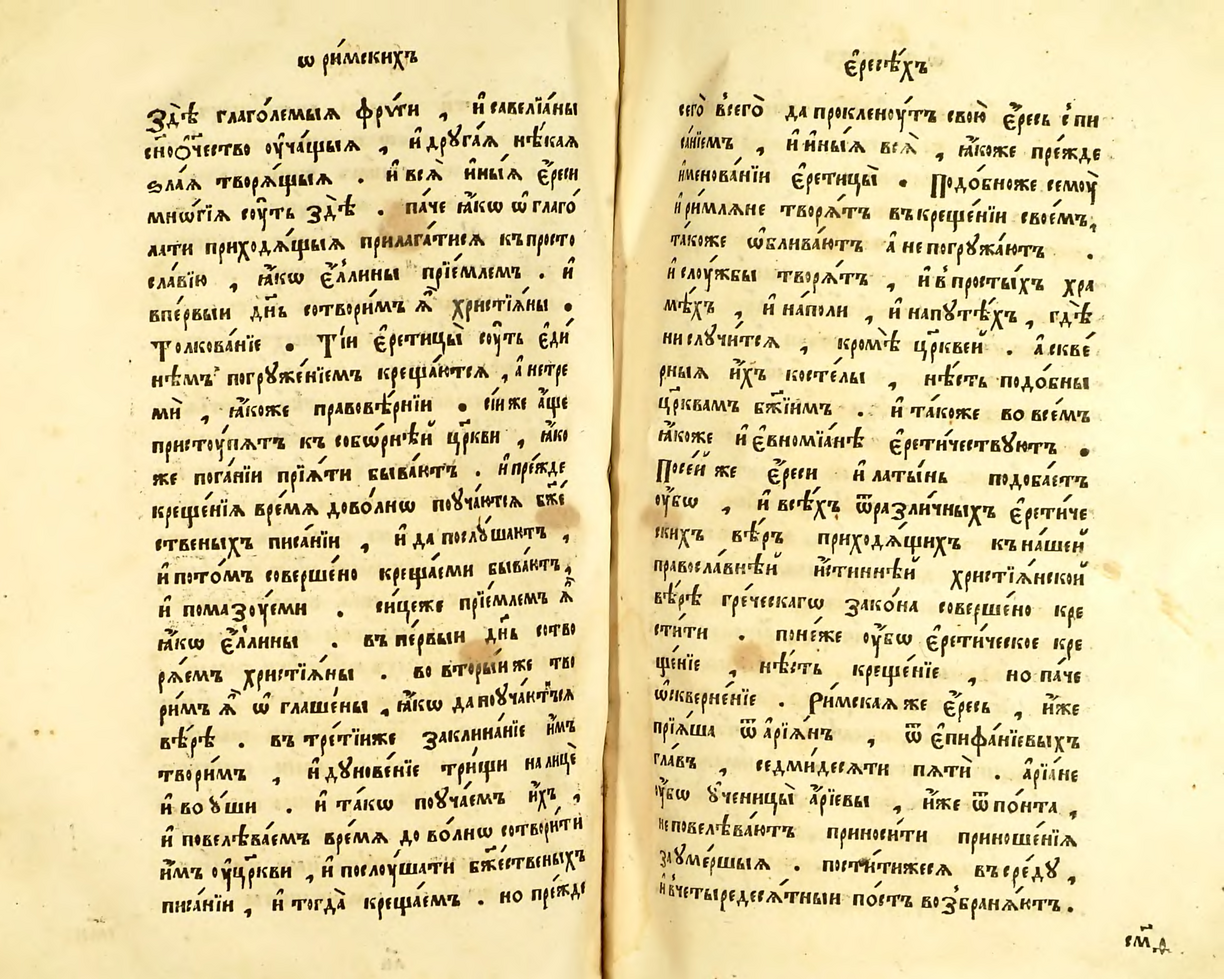 ѡ ри́мскихъ
Здѣ̀ глаго́лемыѧ фрѵ́ги , и҆ савелїа́ны
сн҃оѻ҆ч҃ество ᲂу҆ча́щыѧ , и҆ дрꙋга́ѧ нѣ́каѧ
ѕла́ѧ творѧ́щыѧ . и҆ всѧ̀ и҆ны́ѧ є҆́реси
мнѡ́гїѧ сᲂу́ть здѣ̀ . па́че ꙗ҆́кѡ ѿ глаго́
лати приходѧ́щыѧ прилага́тисѧ къ право
сла́вїю , ꙗ҆́кѡ є҆́ллины прїе́млемъ . и҆
впе́рвыи дн҃ь сотвори́мъ ѧ҆̀ христїѧ́ны .
Толкова́нїе . Ті́и є҆ретицы̀ сᲂу́ть є҆ди́
нѣмъ погрꙋже́нїемъ креща́ютсѧ , а҆ не тре
мѝ , ꙗ҆́коже правовѣ́рнїи . сі́и же а҆́ще
пристᲂу́пѧтъ къ собѡ́рнѣй цр҃кви , ꙗ҆́ко
же пога́нїи прїѧ́ти быва́ютъ . и҆ пре́жде
креще́нїѧ вре́мѧ дово́лнѡ поꙋча́ютсѧ бж҃е́
ственыхъ писа́нїи , и҆ да послꙋ́шаютъ ,
и҆ пото́мъ соверше́но креща́еми быва́ютъ ,
и҆ помазᲂу́еми . си́цеже прїе́млемъ ѧ҆̀
ꙗ҆́кѡ є҆́ллины . въ пе́рвыи дн҃ь сотво
рѧ́емъ христїѧ́ны . во вторы́и же тво
ри́мъ ѧ҆̀ ѡ҆глаше́ны , ꙗ҆́кѡ да поꙋча́ютсѧ
вѣ́рѣ . въ тре́тїиже заклина́нїе и҆̀мъ
твори́мъ , и҆ дꙋнове́нїе три́щи на лицѐ
и҆ во ꙋ҆́ши . и҆ та́кѡ поꙋча́емъ и҆́хъ ,
и҆ повелѣва́емъ вре́мѧ дово́лнѡ сотвори́ти
и҆̀мъ ᲂу҆ цр҃кви , и҆ послᲂу́шати бж҃е́ственыхъ
писа́нїи , и҆ тогда̀ креща́емъ . но пре́жде
є҆ресѣ́хъ
сего̀ всего̀ да проклену́тъ свою̀ є҆́ресь с̾ пи
са́нїемъ , и҆ и҆ны́ѧ всѧ̀ , ꙗ҆́коже пре́жде
и҆менова́нїи є҆ретицы̀ . Подо́бноже семᲂу̀
и҆ ри́млѧне творѧ́тъ въ креще́нїи свое́мъ ,
та́коже ѡ҆блива́ютъ а҆ не погрꙋжа́ютъ .
и҆ слᲂу́жбы творѧ́тъ , и҆ в̾ просты́хъ хра
мѣ́хъ , и҆ на по́ли , и҆ на пꙋтѣ́хъ , гдѣ̀
ни слꙋчи́тсѧ , кромѣ̀ цр҃кве́й . а҆ скве́
рныѧ и҆́хъ косте́лы , нѣ́сть подо́бны
цр҃квамъ бж҃їимъ . и҆ та́коже во все́мъ
ꙗ҆́коже и҆ є҆вномїа́нѣ є҆рети́чествꙋютъ .
По се́й же є҆́реси и҆ латы́нь подоба́етъ
ᲂу҆́бѡ , и҆ всѣ́хъ ѿ разли́чныхъ є҆рети́че
скихъ вѣ́ръ приходѧ́щихъ къ на́шей
правосла́внѣй и҆́стиннѣй христїѧ́нской
вѣ́рѣ гре́ческагѡ зако́на соверше́но кре
сти́ти . поне́же ᲂу҆́бѡ є҆рети́ческое кре
ще́нїе , нѣ́сть креще́нїе , но па́че
ѡ҆скверне́нїе . Ри́мскаѧ же є҆́ресь , и҆́же
прїѧ́ша ѿ а҆рїѧ́нъ , ѿ є҆пифа́нїевыхъ
гла́въ , седмидесѧ́ти пѧтѝ . а҆рїа́не
ᲂу҆́бѡ ꙋ҆ченицы̀ а҆́рїевы , и҆́же ѿ по́нта ,
не повелѣва́ютъ приноси́ти приноше́нїѧ
за ᲂу҆ме́ршыѧ . пости́тижесѧ въ сре́дꙋ ,
и҆ в̾ четыредесѧ́тныи по́стъ возбранѧ́ютъ .